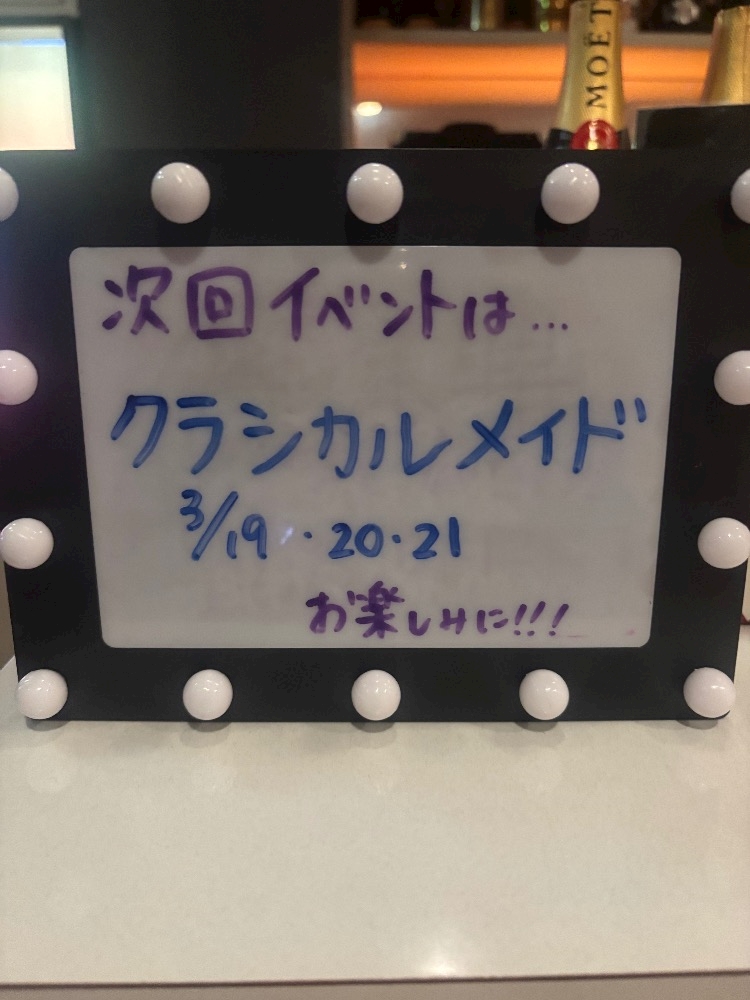 MOËT
次回イベントは...
クラシカルメイド
3/19・20・21
お楽しみに!!!